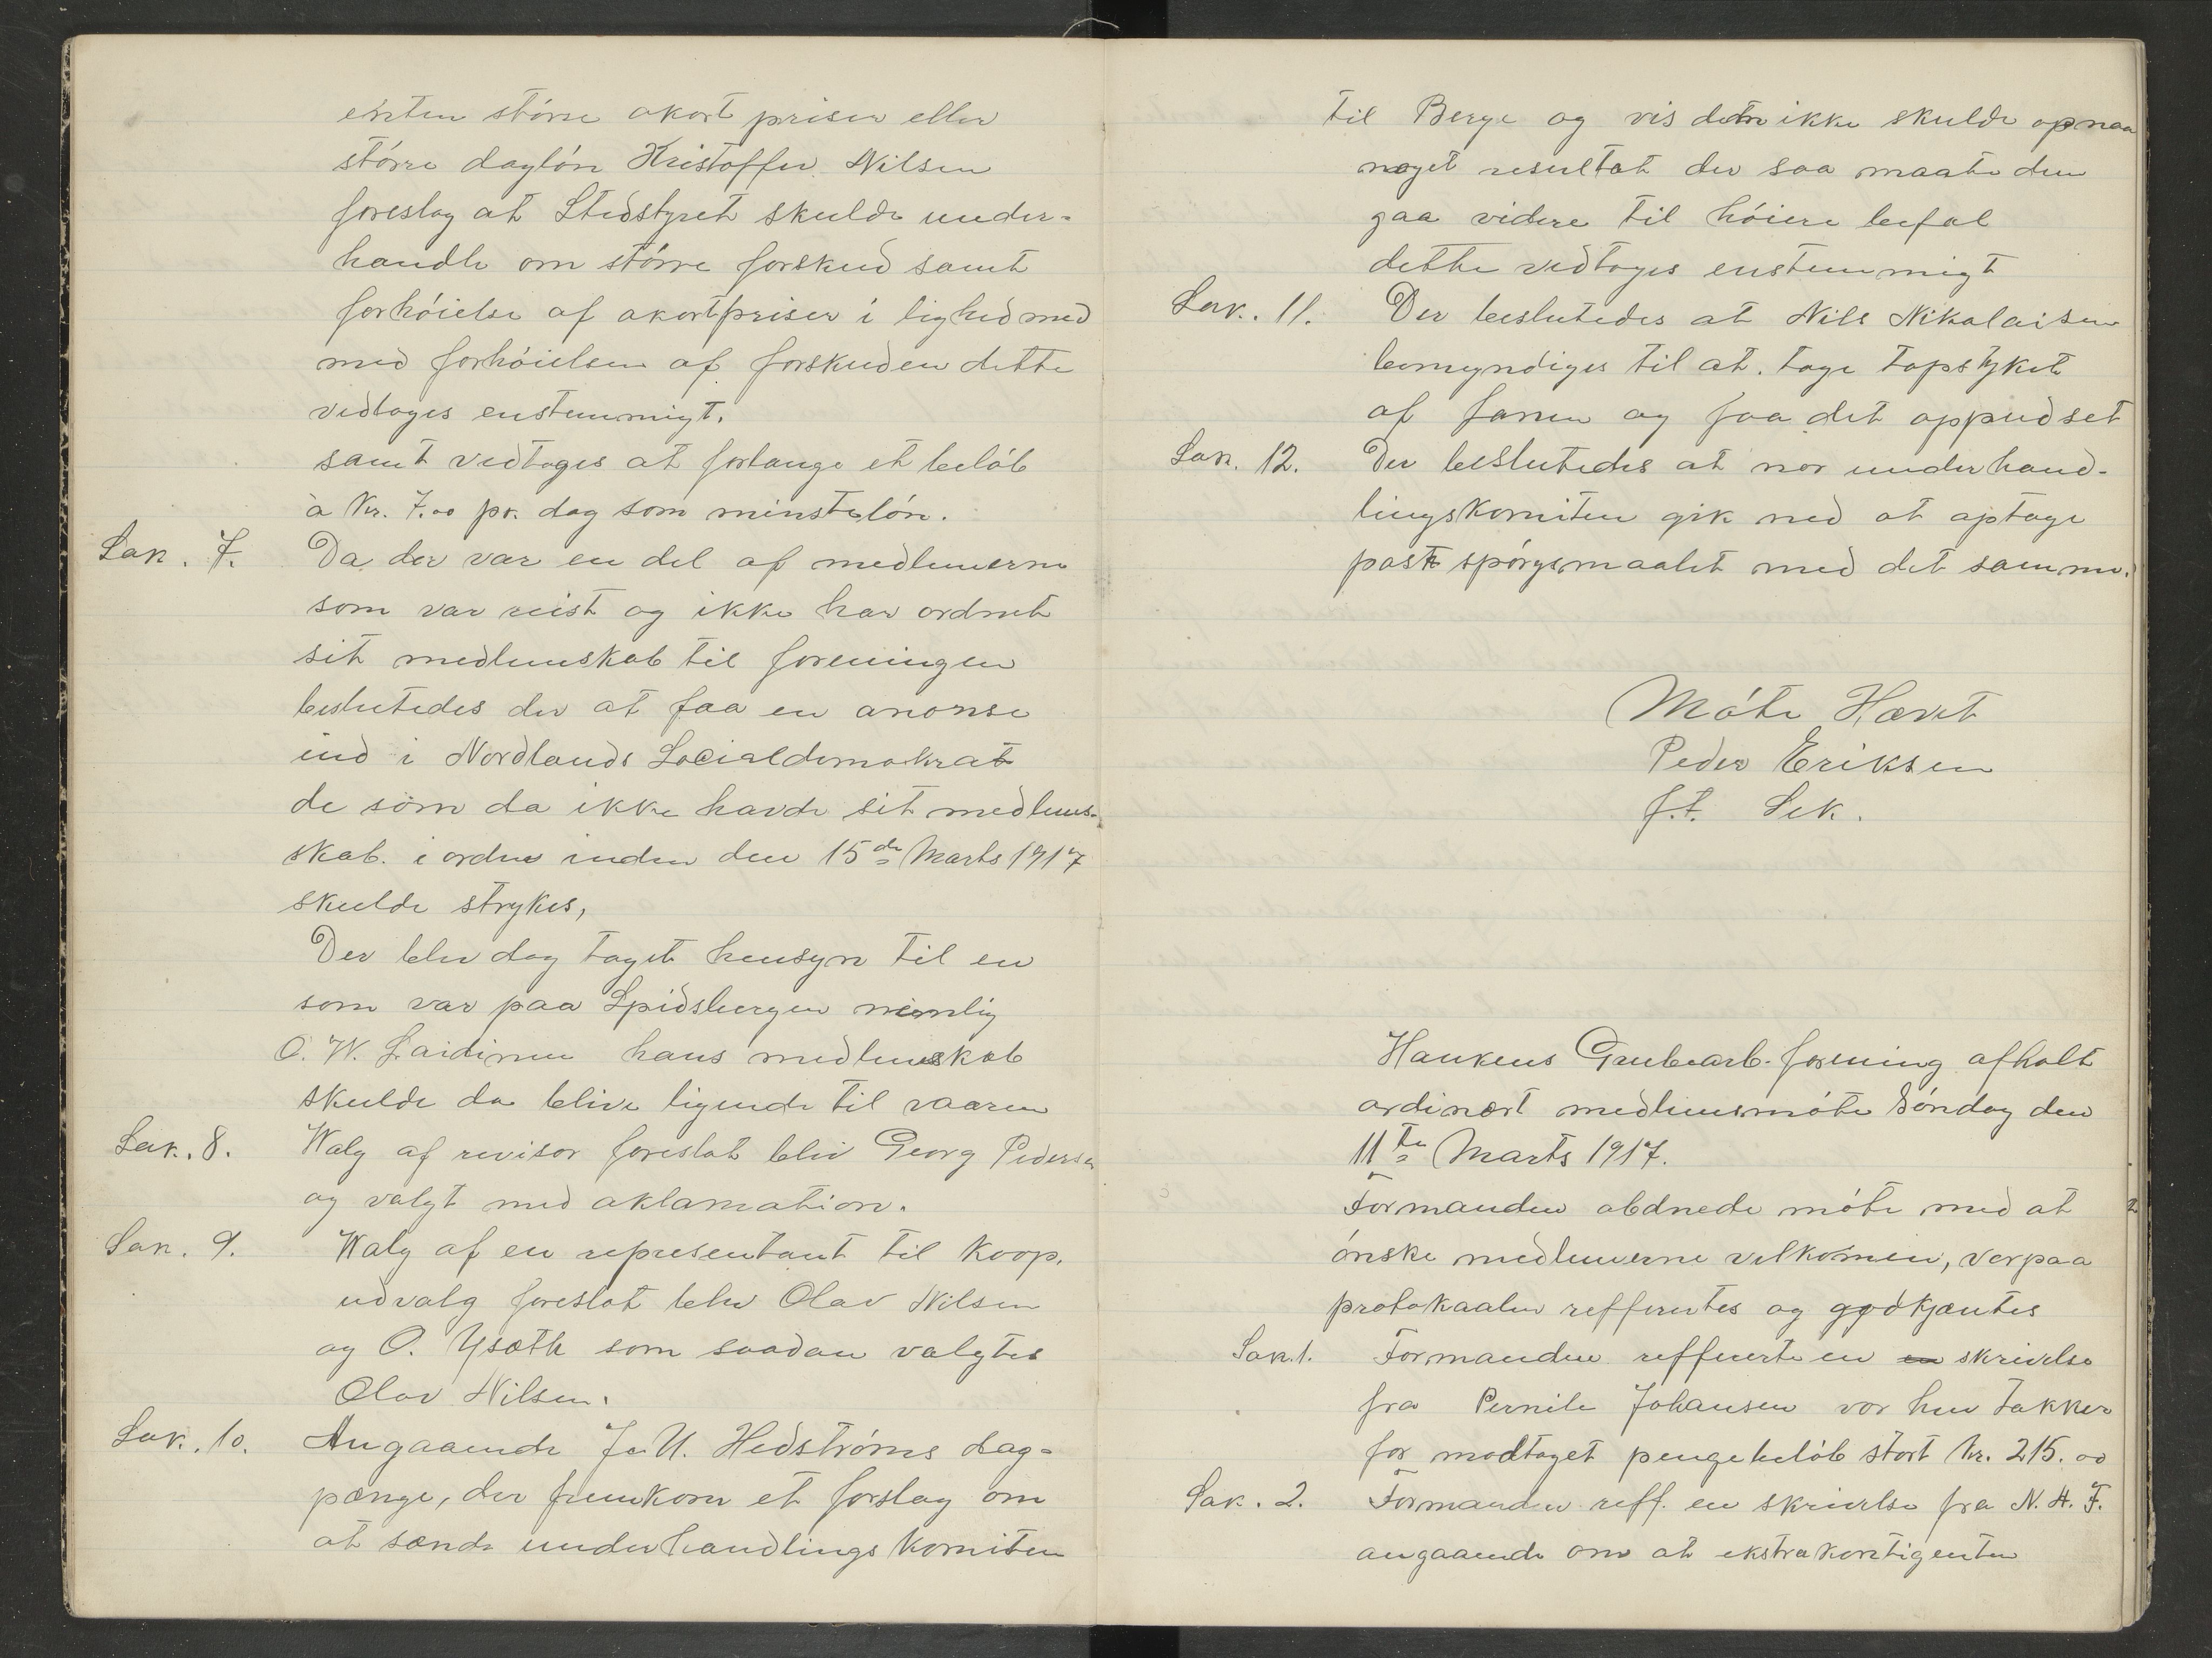 enten större akort priser eller
större daglön Kristoffer Nilsen
foreslog at Stedstyret skulde under-
handle om större forskud samt
forhöielse af akortpriser i lighed med
med forhöielsen af forskuden dette
vedtoges enstemmigt.
samt vedtoges at forlange et belöb
à Kr. 7.00 pr. dag som minstelön.
Sak. 7. Da der var en del af medlemerne
som var reist og ikke har ordnet
sit medlemskab til foreningen
beslutedes der at faa en anonse
ind i Nordlands Socialdemokrat
de som da ikke havde sit medlems-
skab. i orden inden den 15de Marts 1917
skulde strykes,
Der blev dog taget hensyn til en
som var paa Spidsbergen nemlig
O. W. Laidinen hans medlemskab
skulde da blive ligende til vaaren
Sak. 8. Walg af revisor foreslat blev Georg Pedersen
og valgt med aklamation.
Sak. 9. Walg af en representant til Koop.
udvalg foreslot blev Olav Nilsen
og O. Ysæth som saadan valgtes
Olav Nilsen.
Sak. 10. Angaaende Joh. Hedströms dag-
pænge, der fremkom et forslag om
at sænde underhandlings komiten
til Berge og vis den ikke skulde opnaa
noget resultat der saa maate den
gaa videre til höiere befal
dette vedtoges enstemmigt
Sak. 11. Der beslutedes at Nils Nikolaisen
bemyndiges til at. tage topstyket
af fanen og faa det oppudset
Sak. 12. Der beslutedes at nor underhand-
lingskomiten gik ned at optage
post spörgsmaalet med det samme.
Möte Hævet
Peder Eriksen
f.t. Sek.
Haukens Grubearb. forening afholt
ordinært medlemsmöte Söndag den
11te Marts 1917.
Formanden abdnede möte med at
önske medlemerne velkomen, verpaa
protokaalen refferertes og godkjæntes
Sak. 1. Formanden refferertc en en skrivelse
fra Pernile Johansen vor hun takker
for modtaget pengebelöb stort kr. 215.00
Sak. 2. Formanden reff. en skrivelse fra N. A. F.
angaaende om at ekstrakontigenten